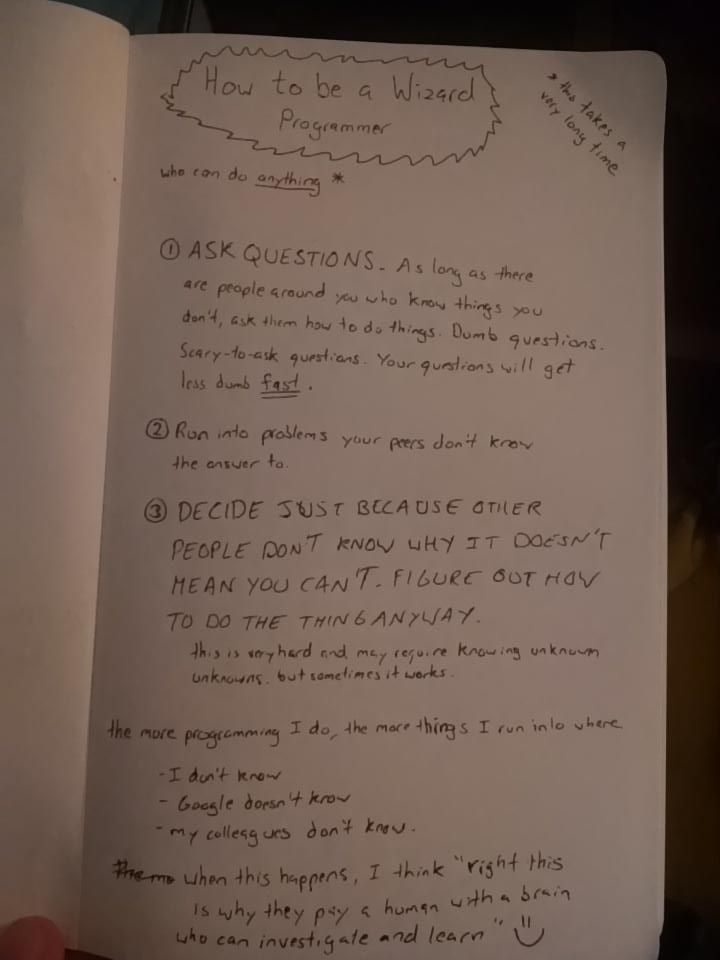 How to be a Wizard
Programmer
* this takes a
very long time
who can do anything *
① ASK QUESTIONS. As long as there
are people around you who know things you
don't, ask them how to do things. Dumb questions.
Scary-to-ask questions. Your questions will get
less dumb fast.
② Run into problems your peers don't know
the answer to.
③ DECIDE JUST BECAUSE OTHER
PEOPLE DON'T KNOW WHY IT DOESN'T
MEAN YOU CAN'T. FIGURE OUT HOW
TO DO THE THING ANYWAY.
this is very hard and may require knowing unknown
unknowns. but sometimes it works.
the more programming I do, the more things I run into where
- I don't know
- Google doesn't know
- my colleagues don't know.
The mo when this happens, I think "right this
is why they pay a human with a brain
who can investigate and learn" :)